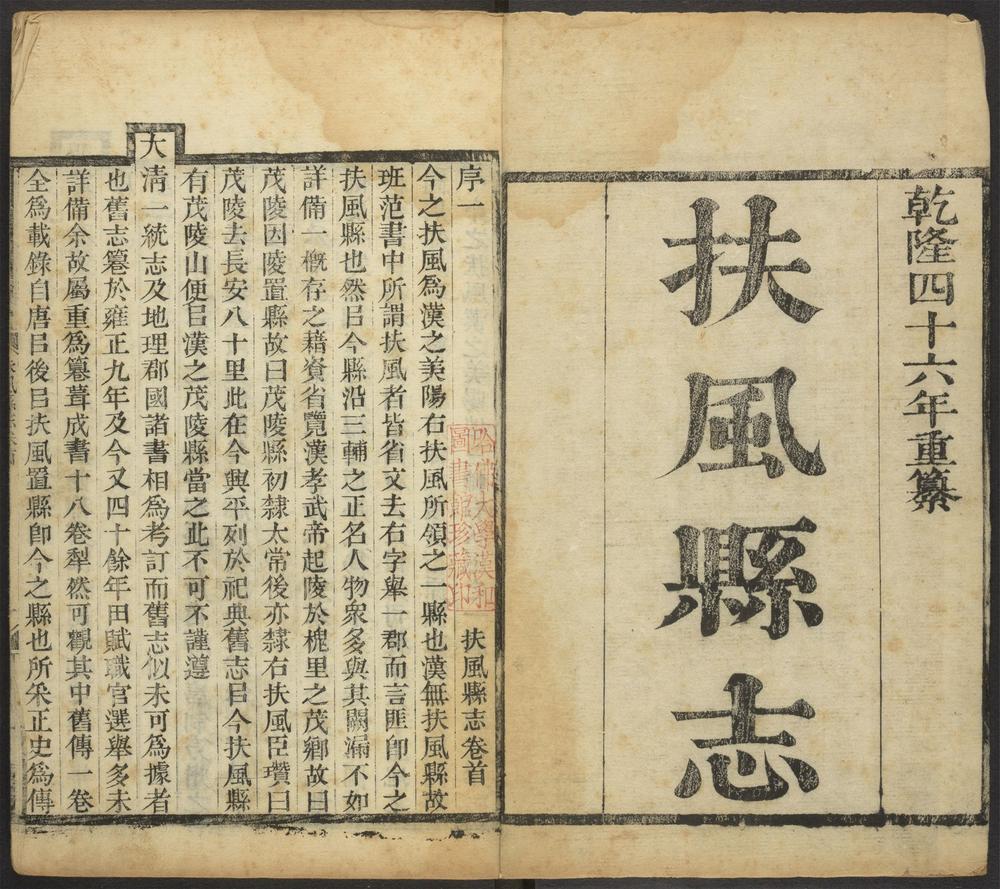 乾隆四十六年重纂
扶風縣志
序一
扶風縣志卷首
今之扶風爲漢之美陽右扶風所領之一縣也漢無扶風縣故
班范書中所謂扶風者皆省文去右字舉一郡而言匪卽今之
扶風縣也然㠯今縣沿三輔之正名人物衆多與其闕漏不如
詳備一概存之藉資省覽漢孝武帝起陵於槐里之茂鄉故曰
茂陵因陵置縣故曰茂陵縣初隸太常後亦隸右扶風臣瓚曰
茂陵去長安八十里此在今興平列於祀典舊志㠯今扶風縣
有茂陵山便㠯漢之茂陵縣當之此不可不謹遵
大淸一統志及地理郡國諸書相爲考訂而舊志似未可爲據者
也舊志篹於雍正九年及今又四十餘年田賦職官選舉多未
詳備余故屬重爲篹葺成書十八卷犁然可觀其中舊傳一卷
全爲載錄自唐㠯後㠯扶風置縣卽今之縣也所采正史爲傳
哈佛大學漢和
圖書館珍藏印